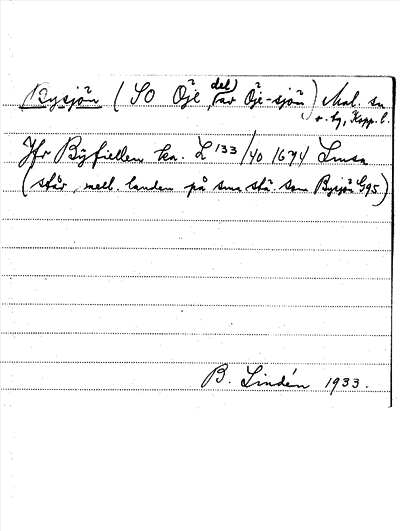 Bysjön (SO Öje, del av Öje-sjön) Mal. sn
o. tg, Kopp. l.
Jfr Byfiellen ka. L 133/40 1674 Lmsa
(står mell. landen på sma stä. som Bysjön G95)
B. Lindén 1933.